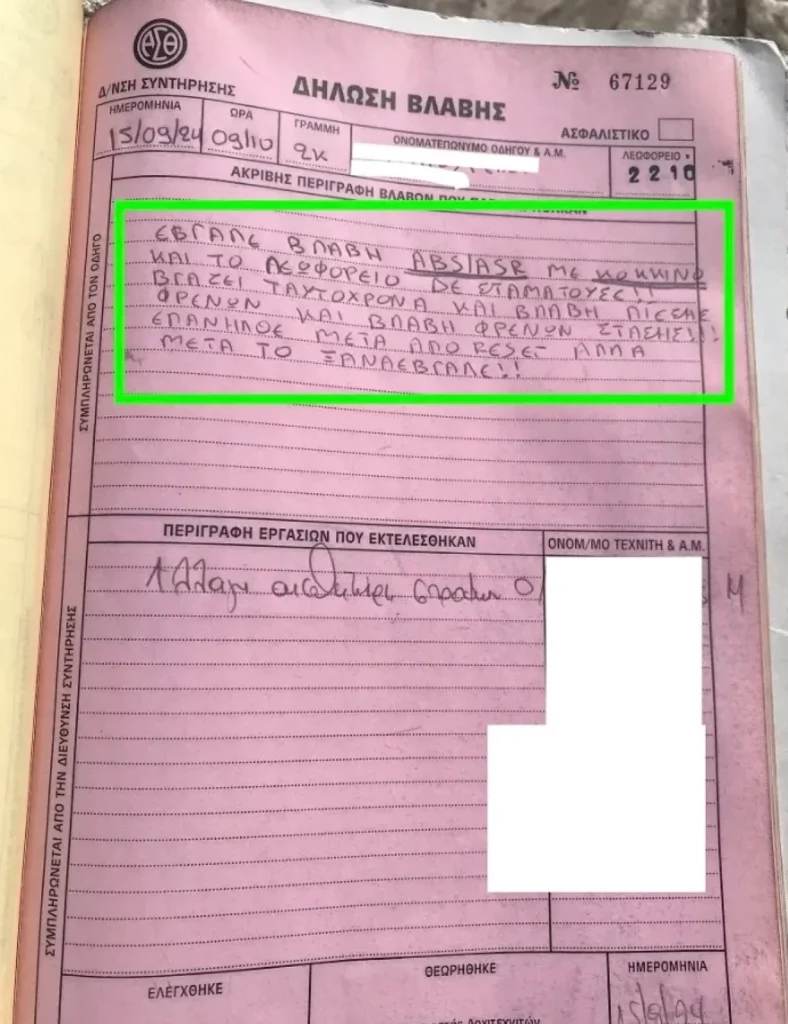 ΑΣΘ
Δ/ΝΣΗ ΣΥΝΤΗΡΗΣΗΣ
ΔΗΛΩΣΗ ΒΛΑΒΗΣ
№ 67129
ΗΜΕΡΟΜΗΝΙΑ
15/09/24
ΩΡΑ
09/10
ΓΡΑΜΜΗ
2Κ
ΟΝΟΜΑΤΕΠΩΝΥΜΟ ΟΔΗΓΟΥ & Α.Μ.
ΑΣΦΑΛΙΣΤΙΚΟ
ΛΕΩΦΟΡΕΙΟ
2210
ΑΚΡΙΒΗΣ ΠΕΡΙΓΡΑΦΗ ΒΛΑΒΩΝ ΠΟΥ
ΣΥΜΠΛΗΡΩΝΕΤΑΙ ΑΠΟ ΤΟΝ ΟΔΗΓΟ
ΕΒΓΑΛΕ ΒΛΑΒΗ ABS/ASR ΜΕ ΚΟΚΚΙΝΟ
ΚΑΙ ΤΟ ΛΕΩΦΟΡΕΙΟ ΔΕ ΣΤΑΜΑΤΟΥΣΕ!!
ΒΓΑΖΕΙ ΤΑΥΤΟΧΡΟΝΑ ΚΑΙ ΒΛΑΒΗ ΠΙΕΣΗΣ
ΦΡΕΝΩΝ ΚΑΙ ΒΛΑΒΗ ΦΡΕΝΩΝ ΣΤΑΣΗΣ!!!
ΕΠΑΝΗΛΘΕ ΜΕΤΑ ΑΠΟ RESET ΑΛΛΑ
ΜΕΤΑ ΤΟ ΞΑΝΑΕΒΓΑΛΕ!!
ΠΕΡΙΓΡΑΦΗ ΕΡΓΑΣΙΩΝ ΠΟΥ ΕΚΤΕΛΕΣΘΗΚΑΝ
ΟΝΟΜ/ΜΟ ΤΕΧΝΙΤΗ & Α.Μ.
ΣΥΜΠΛΗΡΩΝΕΤΑΙ ΑΠΟ ΤΗΝ ΔΙΕΥΘΥΝΣΗ ΣΥΝΤΗΡΗΣΗΣ
Αλλαγη
Μ
ΕΛΕΓΧΘΗΚΕ
ΘΕΩΡΗΘΗΚΕ
ΗΜΕΡΟΜΗΝΙΑ
15/9/24